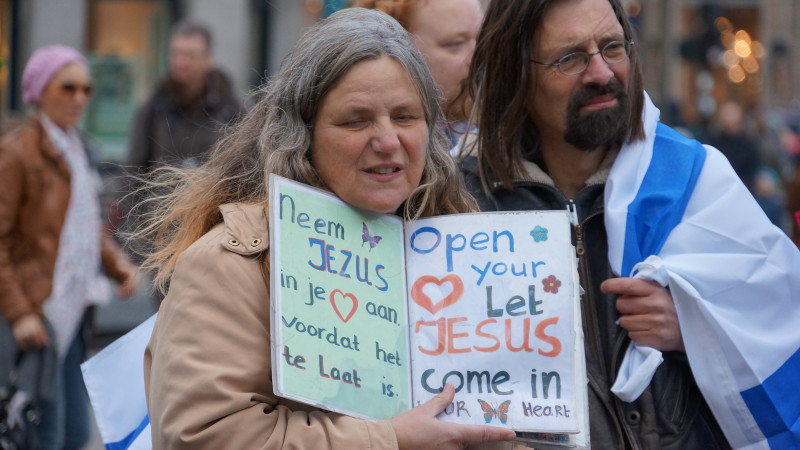 Neem
JEZUS
in je aan.
voordat het
te Laat is.
Open
your
Let
JESUS
come in
YOUR Heart